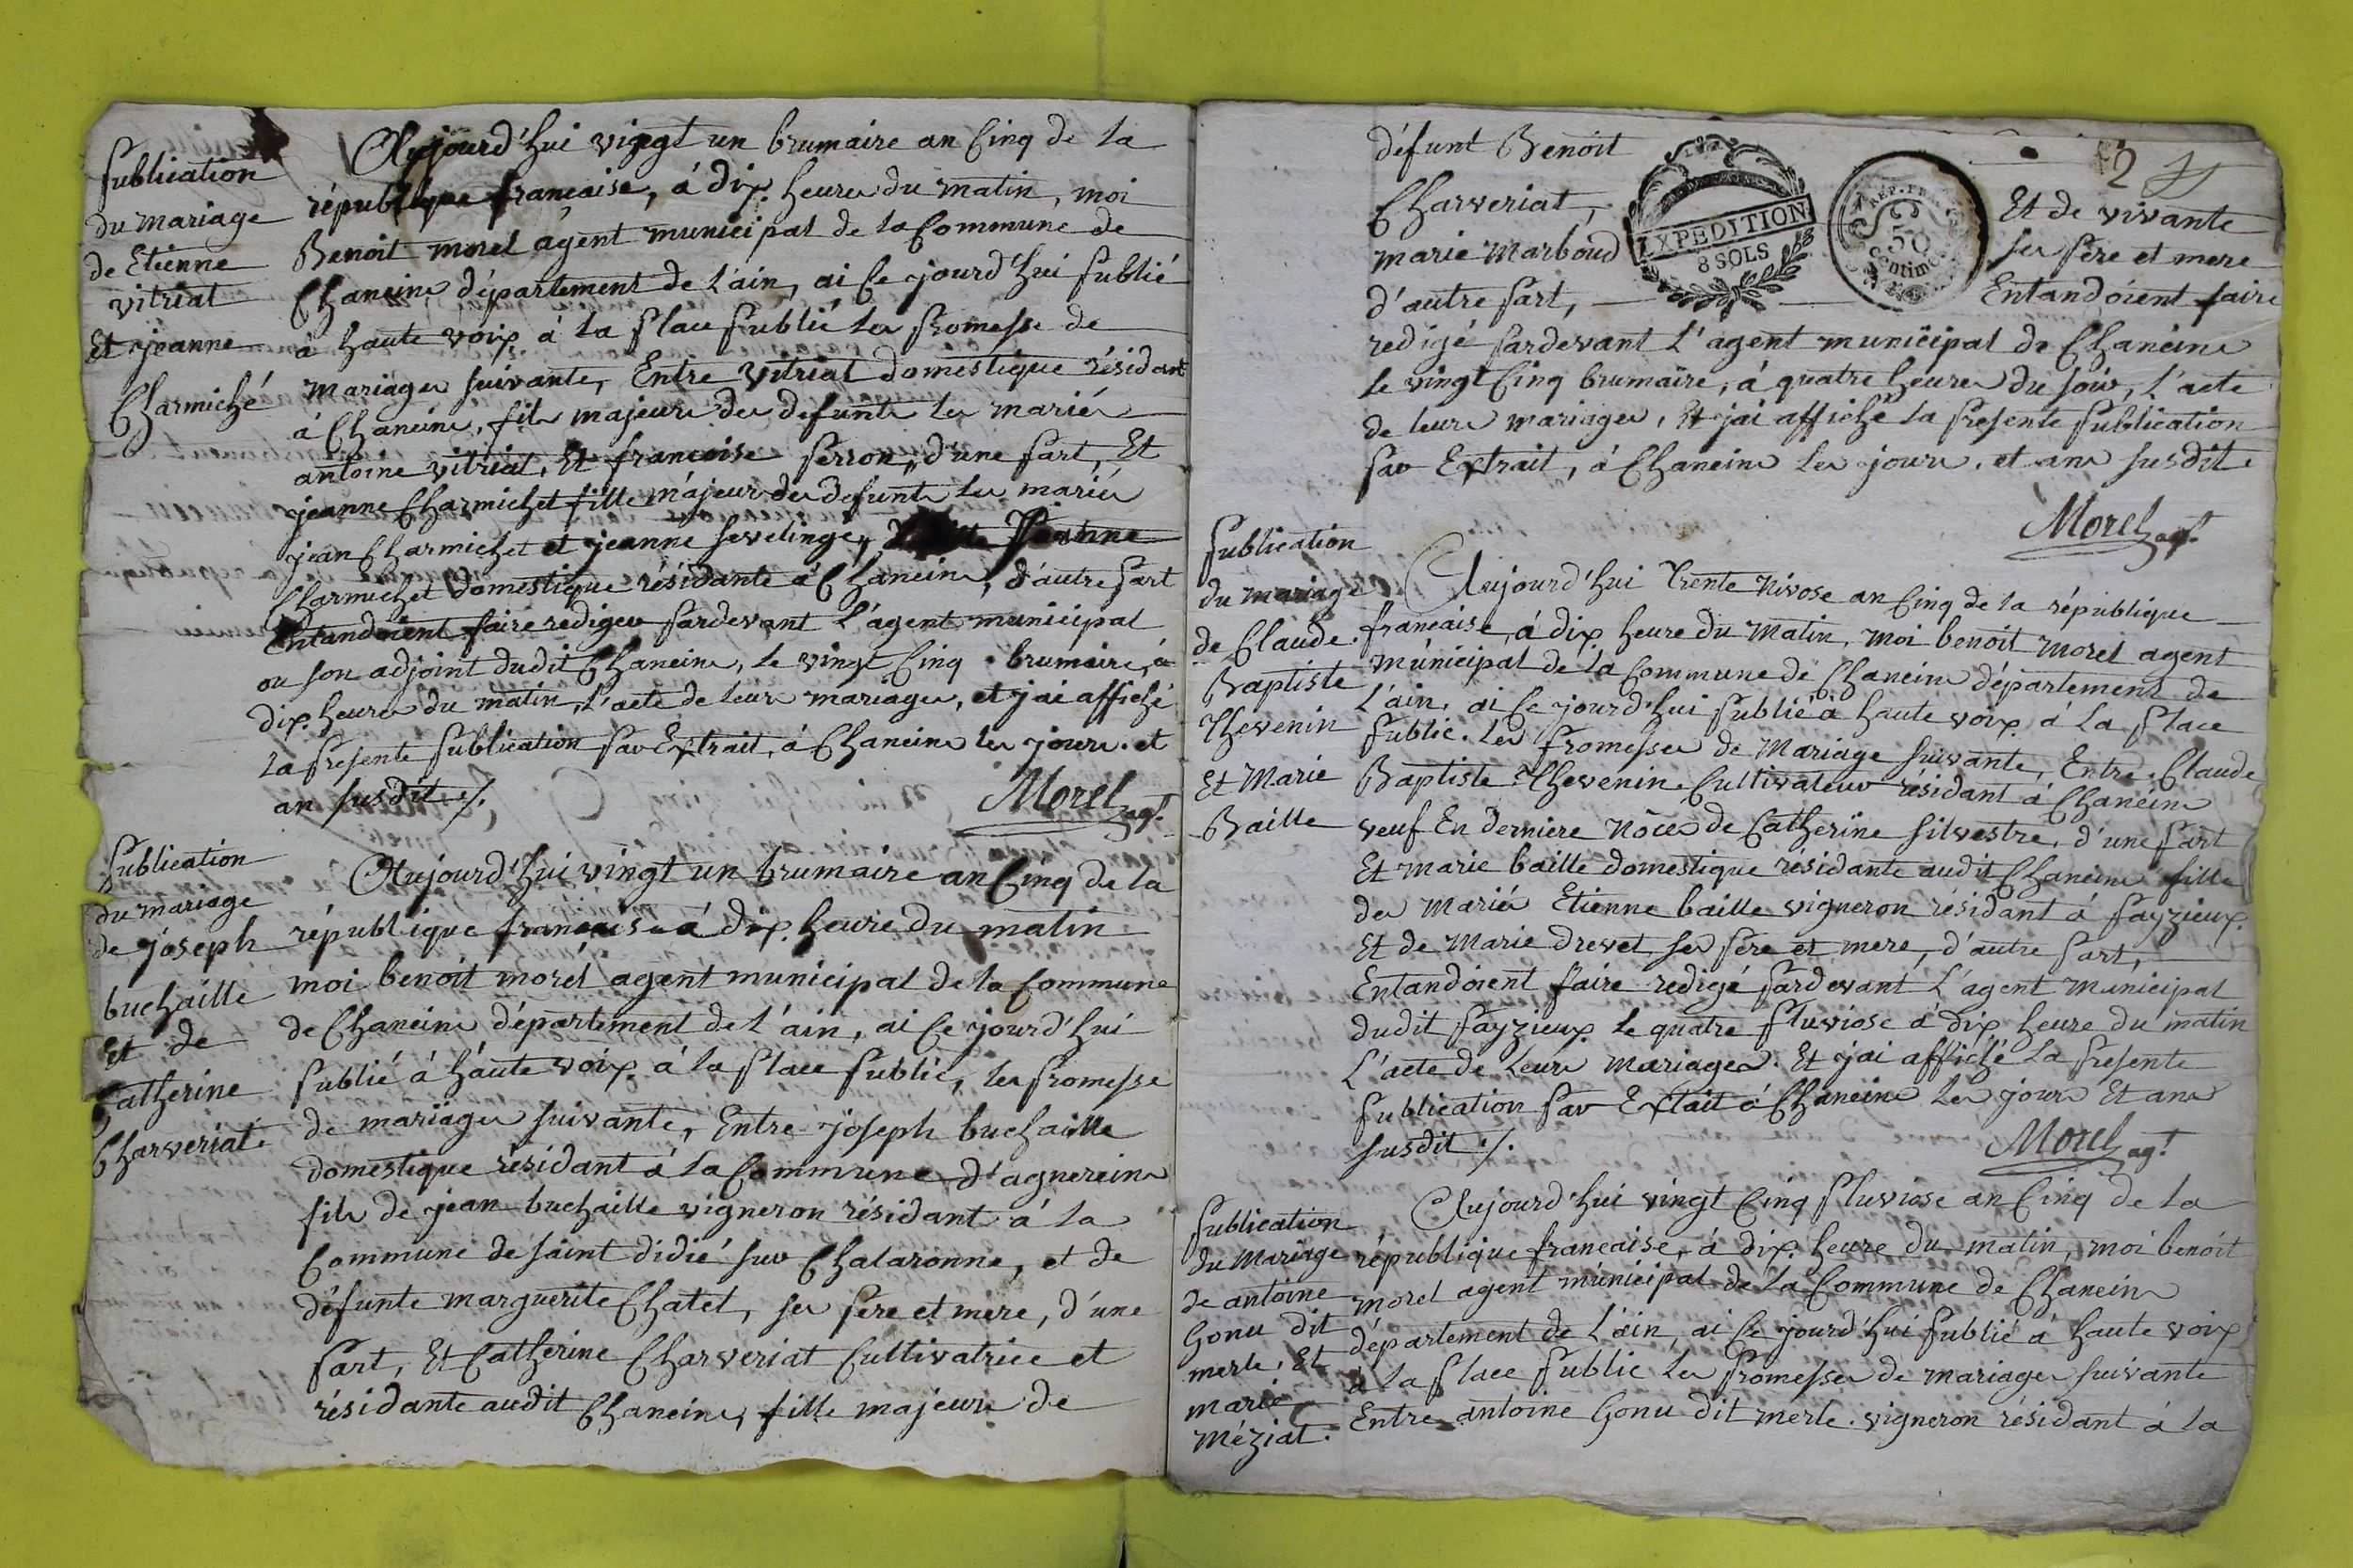 Publication
du mariage
de Etienne
vitriat
Et jeanne
Charmiché
Aujourd'hui vingt un brumaire an Cinq de la
républiques francaise, á dix heures du matin, moi
Benoit morel agent municipal de la Commune de
Chaneins département de L'ain, ai Ce jourd'hui publié
à haute voix à la place publié les promesse de
mariages suivante, Entre Vitriat domestique résidant
à Chaneins, fils majeurs des defunts les mariés
antoine vitriat, Et francoise perron, d'une part, Et
jeanne Charmichet fille majeur des defunts les mariés
jean Charmichet et jeanne sevelinge,
Charmichet domestique résidante à Chaneins, d'autre part
Entandoient faire rediger pardevant L'agent municipal
ou son adjoint dudit Chaneins, le vingt Cinq brumaire, à
dix heures du matin, L'acte de leurs mariages, et jai affiché
La presente publication par Extrait, à Chaneins les jours et
an susdit ./.
Morel agt.
Publication
du mariage
de joseph
buchaille
Et de
Catherine
Charveriat.
Aujourd'hui vingt un brumaire an Cinq de la
république francaise à dix heure du matin
moi benoit morel agent municipal de la Commune
de Chaneins département de L'ain, ai Ce jourd'hui
publié à haute voix à la place public, les promesse
de mariages suivante, Entre joseph buchaille
domestique résidant à la Commune d'agnereins
fils de jean buchaille vigneron résidant à la
Commune de saint didié sur Chalaronne, et de
défunte marguerite Chatel, ses père et mere, d'une
part, Et Catherine Charveriat Cultivatrice et
résidante audit Chaneins, fille majeure de
2
défunt Benoit
Charveriat,
Et de vivante
marie Marboud
ses père et mere
d'autre part,
Entandoient faire
EXPEDITION
8 SOLS
RÉP. FRA.
50
centimes
redigé pardevant L'agent municipal de Chaneins
le vingt Cinq brumaire, à quatre heures du soir, L'acte
de leurs mariages, Et jai affiché la presente publication
par Extrait, à Chaneins les jours, et ans susdit.
Morel agt.
Publication
du mariage
de Claude.
Baptiste
Thevenin
Et Marie
Baille
Aujourd'hui Trente Nivose an Cinq de la république
francaise, à dix heure du Matin, moi benoit morel agent
municipal de la Commune de Chaneins département de
L'ain, ai Ce jourd'hui publié à haute voix à La place
public. les promesses de Mariage suivante, Entre Claude
Baptiste Thevenin Cultivateur résidant à Chaneins
veuf En derniere Nôces de Catherine silvestre, d'une part
Et marie baille domestique résidante audit Chaneins fille
des Mariés Etienne baille vigneron résidant á fayzieux
Et de Marie drevet, ses père et mere, d'autre part,
Entandoient faire redigé pardevant L'agent Municipal
dudit fayzieux le quatre pluviose à dix heure du matin
L'acte de Leurs mariages. Et jai affiché la presente
publication par Extait à Chaneins Les jours Et ans
susdit ./.
Morel agt.
Publication
du Mariage
de antoine
Gonu dit
merle. Et
marie
méziat.
Aujourd'hui vingt Cinq pluviose an Cinq de la
république francaise, à dix heure du matin, moi benoit
morel agent municipal de la Commune de Chaneins
département de L'ain, ai Ce jourd'hui publié à haute voix
à la place public les promesses de mariages suivante
Entre antoine Gonu dit merle. vigneron résidant à la